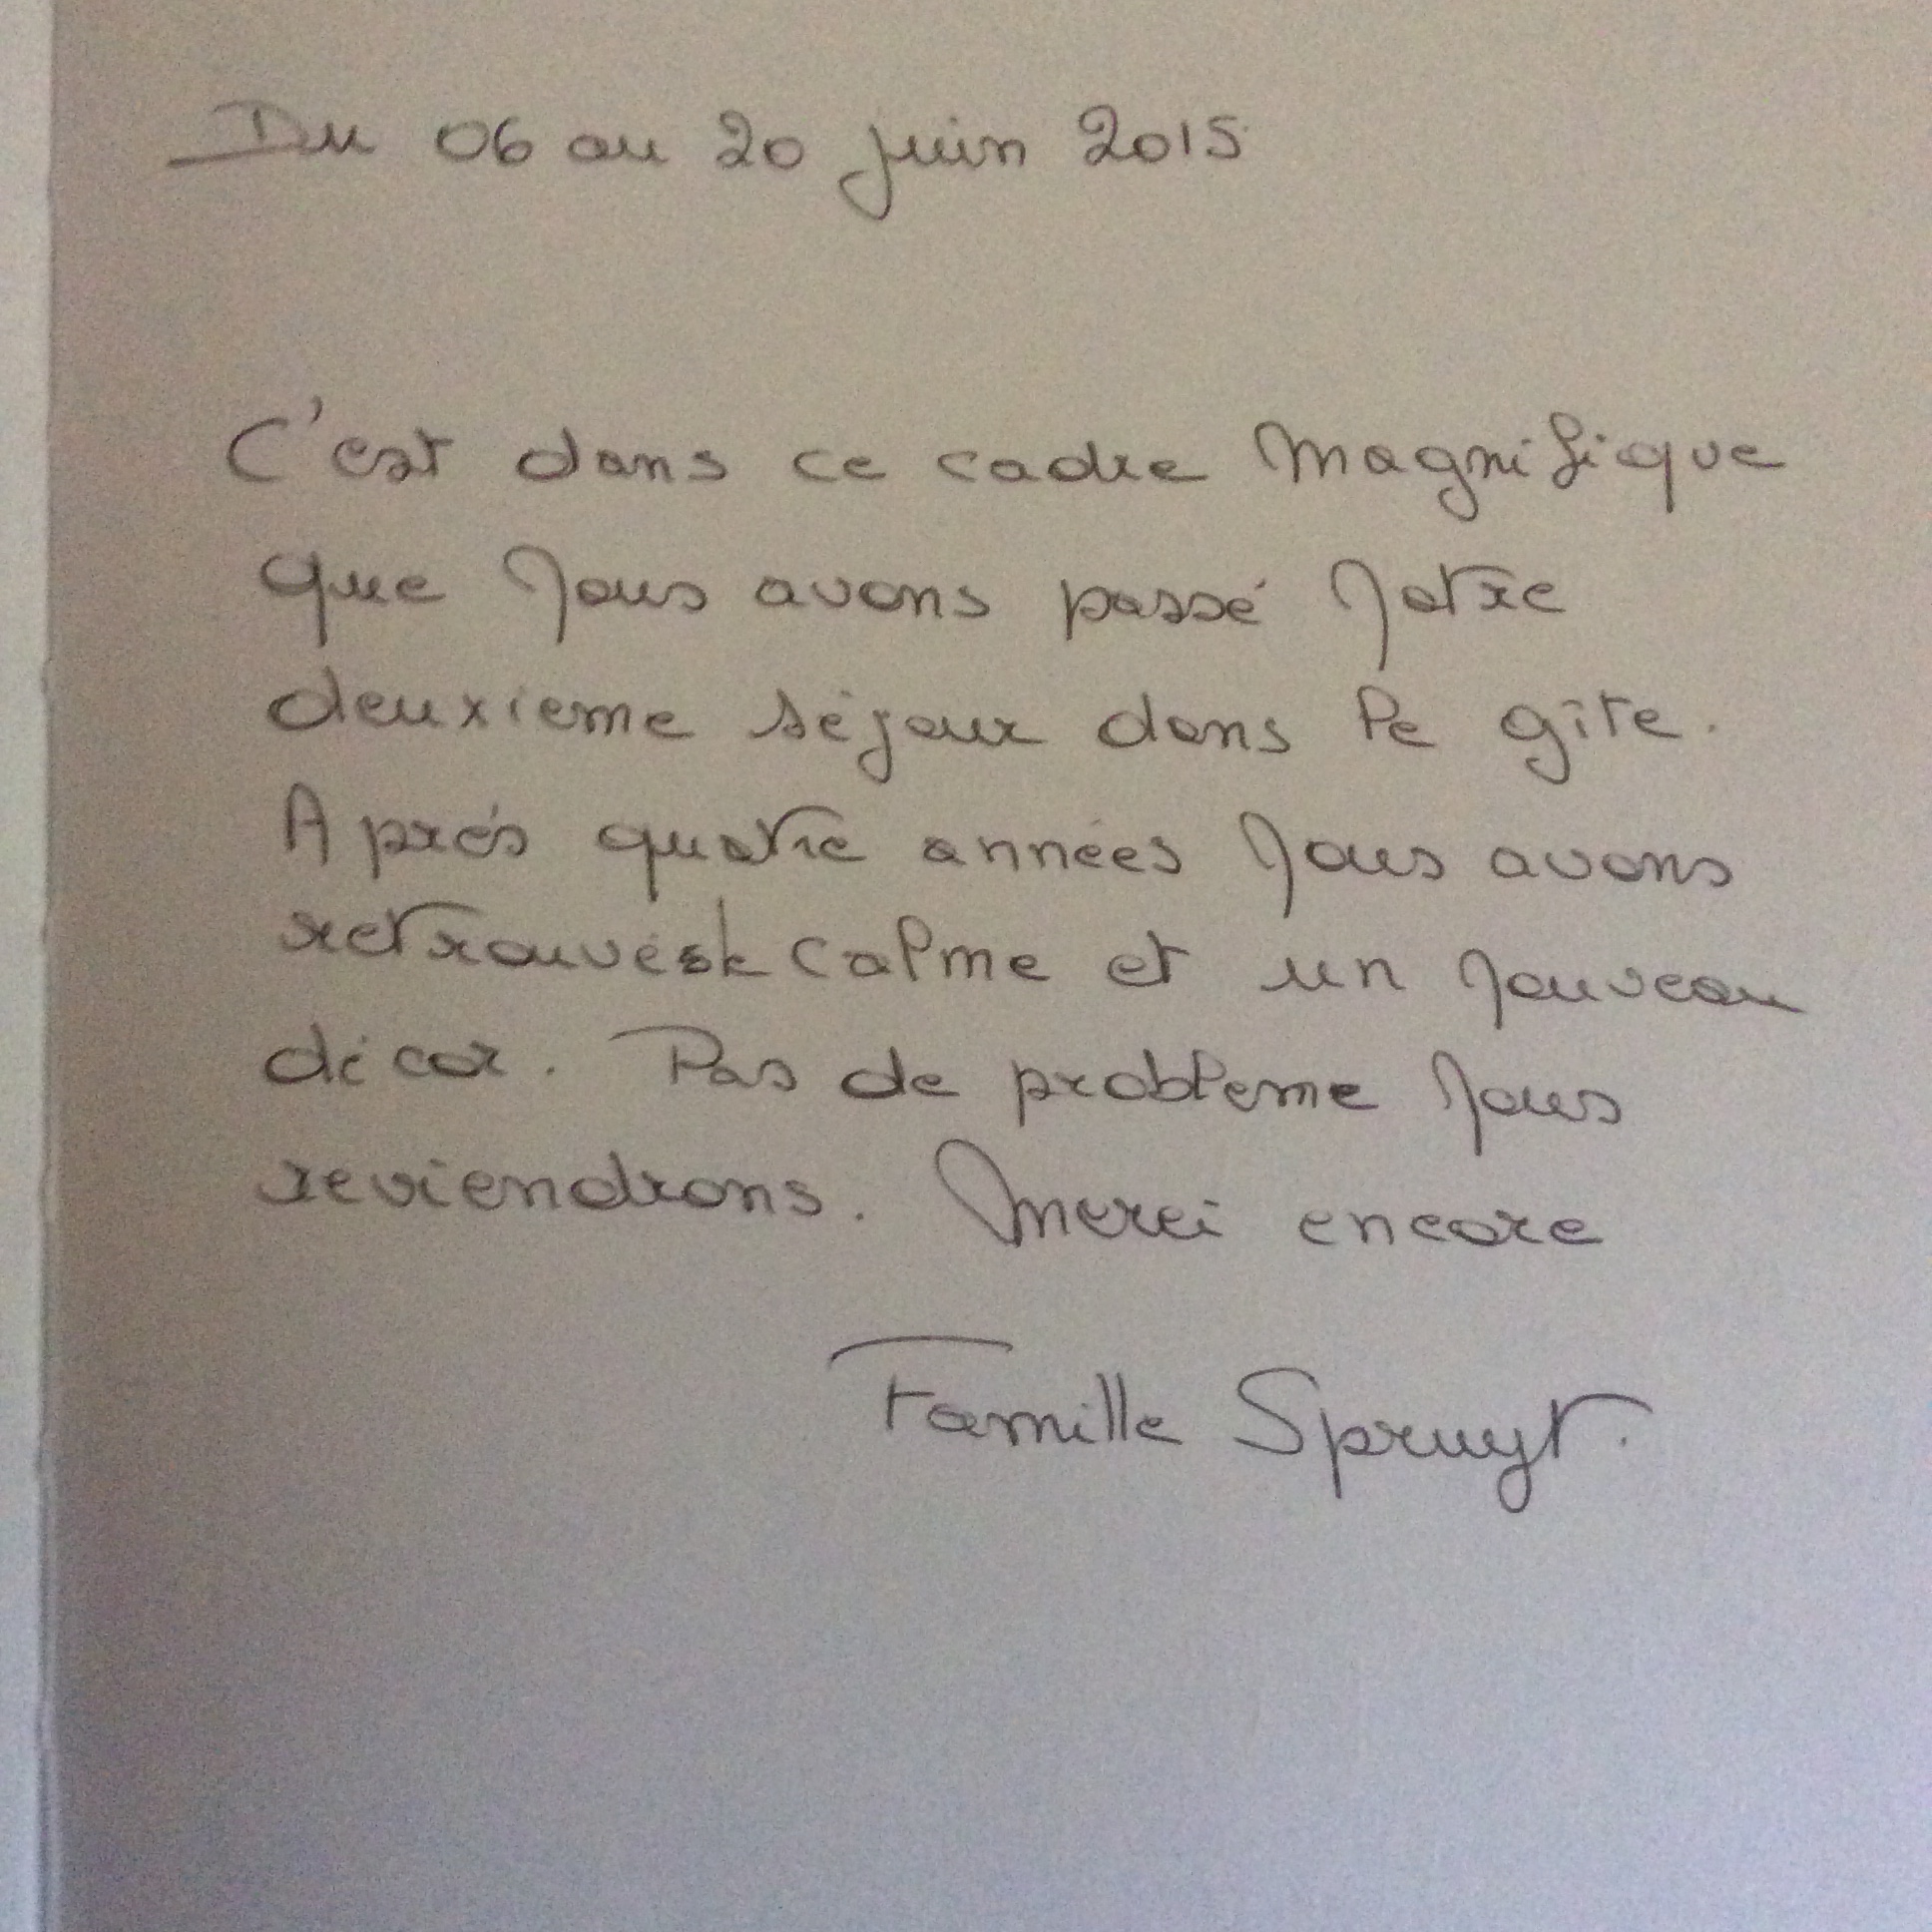 Du 06 au 20 juin 2015
C'est dans ce cadre magnifique
que nous avons passé notre
deuxieme séjour dans le gîte.
Aprés quatre années nous avons
retrouvés le calme et un nouveau
décor. Pas de probleme nous
reviendrons. Merci encore
Famille Spruyt.